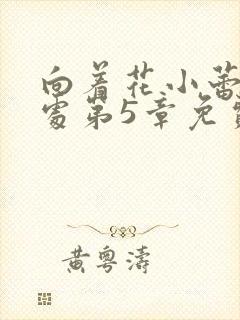 向着花小蕾
处第5章免费
黄粤涛